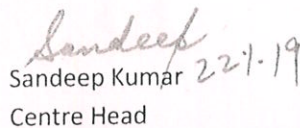 Sandeep
Sandeep Kumar 22/1.19
Centre Head